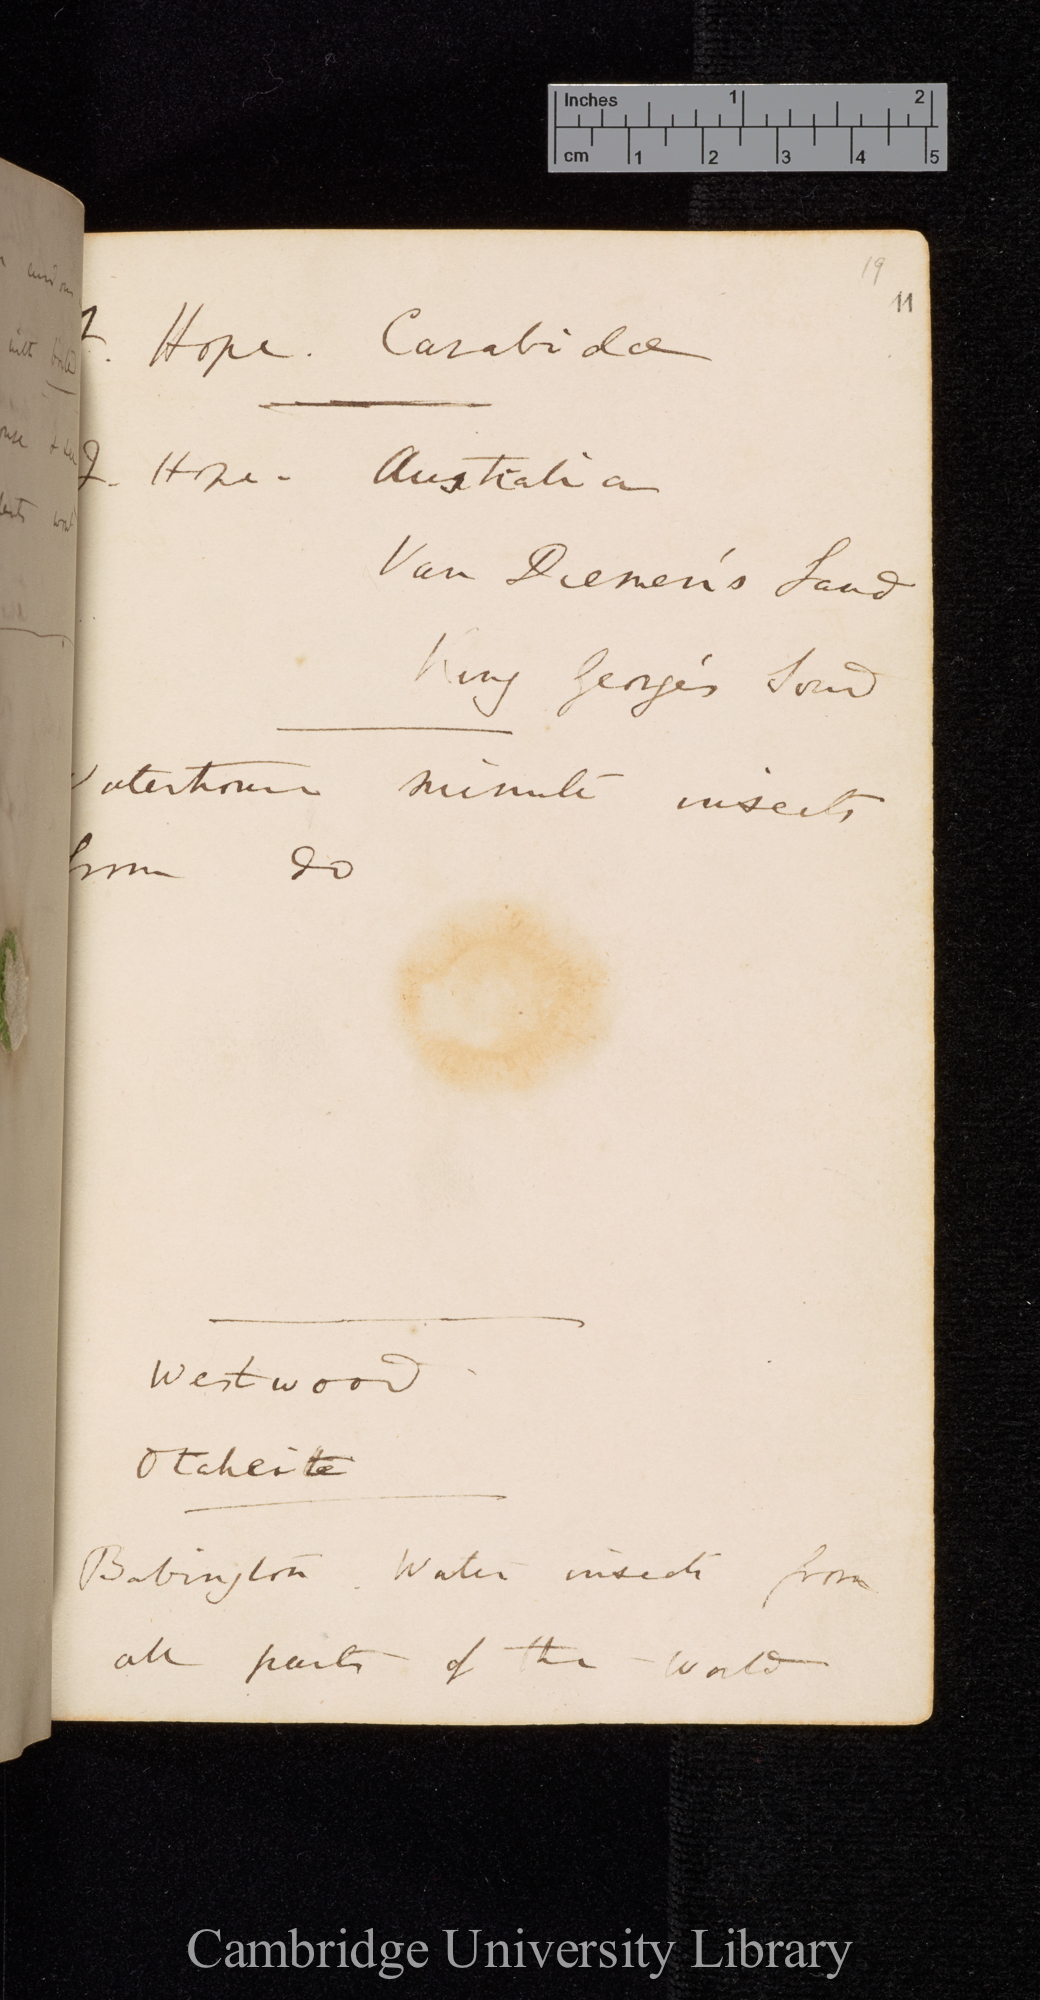 Inches 1 2
cm 1 2 3 4 5
19
11
F. Hope. Carabidae
F. Hope. Australia
Van Diemen's Land
King George's Sound
Waterhouse minute insects
from do
Westwood
Otaheite
Babington. Water insects from
all parts of the World
with
Cambridge University Library